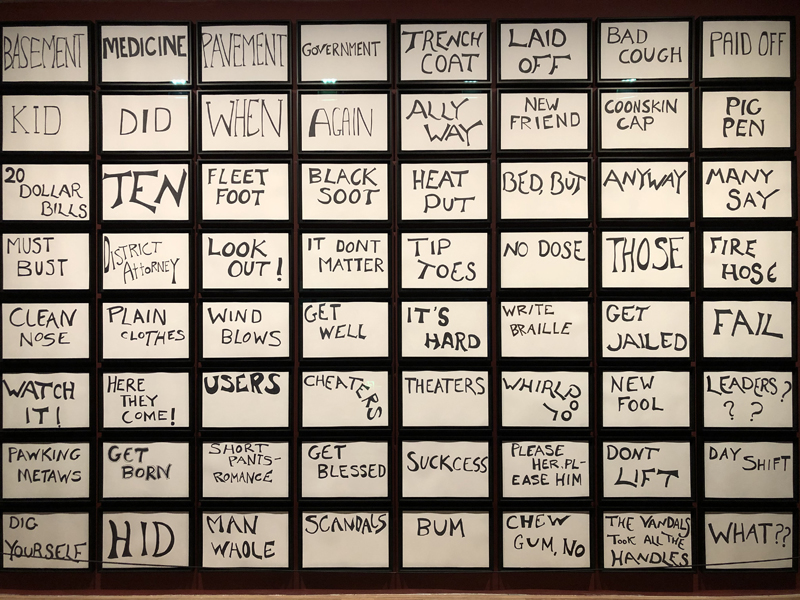 BASEMENT
MEDICINE
PAVEMENT
GOVERNMENT
TRENCH
COAT
LAID
OFF
BAD
COUGH
PAID OFF
KID
DID
WHEN
AGAIN
ALLY
WAY
NEW
FRIEND
COONSKIN
CAP
PIG
PEN
20
DOLLAR
BILLS
TEN
FLEET
FOOT
BLACK
SOOT
HEAT
PUT
BED, BUT
ANYWAY
MANY
SAY
MUST
BUST
DISTRICT
ATTORNEY
LOOK
OUT!
IT DONT
MATTER
TIP
TOES
NO DOSE
THOSE
FIRE
HOSE
CLEAN
NOSE
PLAIN
CLOTHES
WIND
BLOWS
GET
WELL
IT'S
HARD
WRITE
BRAILLE
GET
JAILED
FAIL
WATCH
IT!
HERE
THEY
COME!
USERS
CHEATERS
THEATERS
WHIRLPOOL
NEW
FOOL
LEADERS?
? ?
PAWKING
METAWS
GET
BORN
SHORT
PANTS-
ROMANCE
GET
BLESSED
SUCKCESS
PLEASE
HER. PL-
EASE HIM
DONT
LIFT
DAY
SHIFT
DIG
YOURSELF
HID
MAN
WHOLE
SCANDALS
BUM
CHEW
GUM, NO
THE VANDALS
TOOK ALL THE
HANDLES
WHAT??